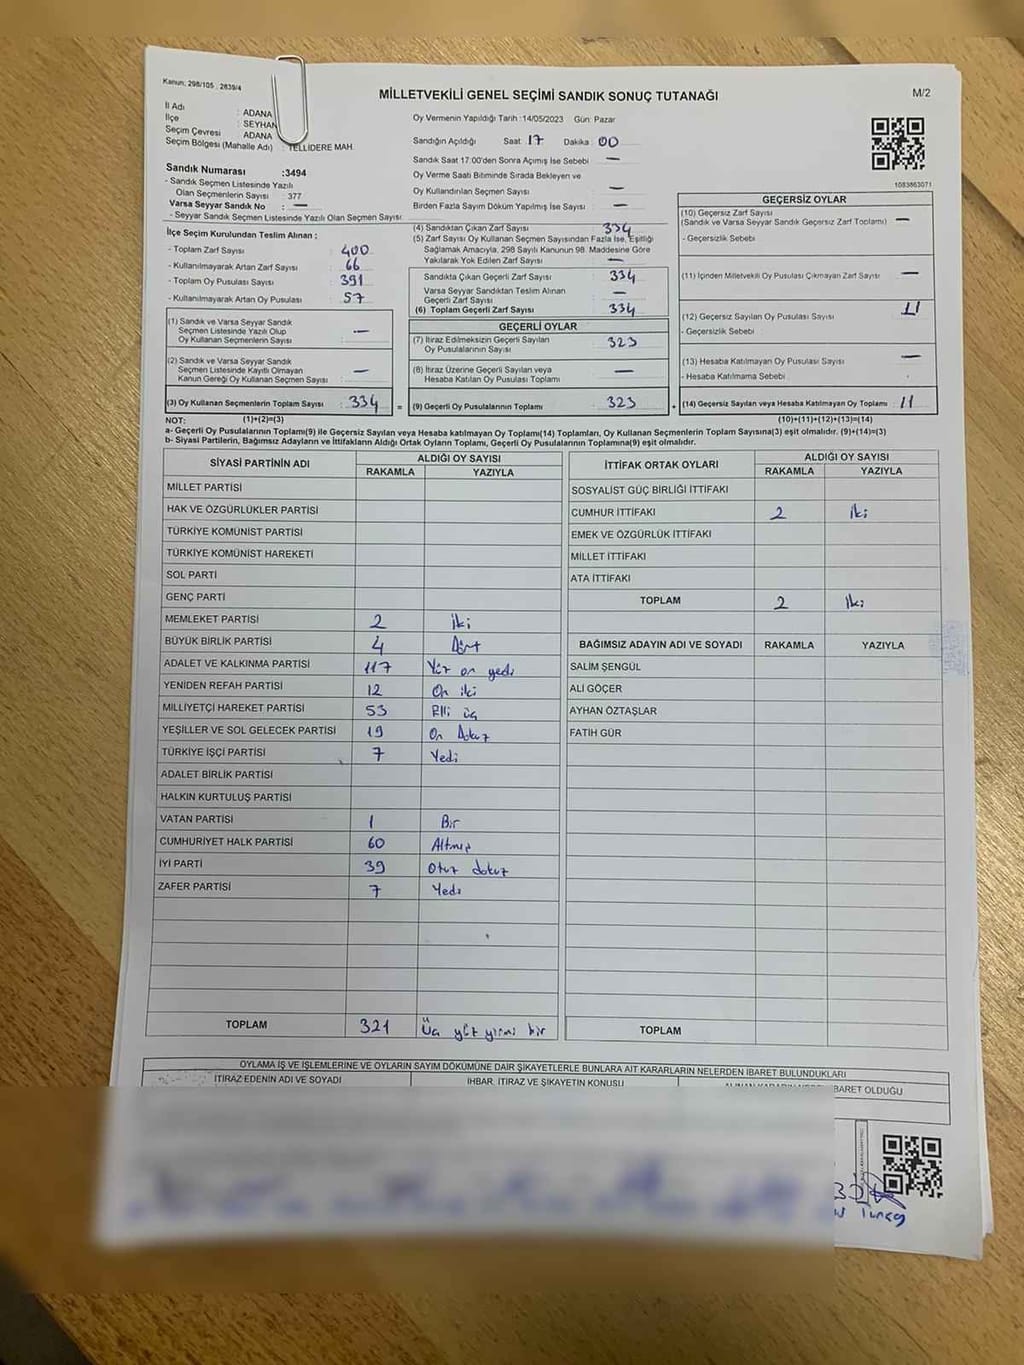 Kanun: 298/105 , 2839/4
MİLLETVEKİLİ GENEL SEÇİMİ SANDIK SONUÇ TUTANAĞI
M/2
İl Adı : ADANA
İlçe : SEYHAN
Seçim Çevresi ADANA
Seçim Bölgesi (Mahalle Adı) : TELLİDERE MAH.
Oy Vermenin Yapıldığı Tarih :14/05/2023 Gün: Pazar
Sandığın Açıldığı Saat 17 Dakika 00
Sandık Saat 17:00'den Sonra Açmış İse Sebebi —
Oy Verme Saati Bitiminde Sırada Bekleyen ve
Oy Kullandırılan Seçmen Sayısı —
Birden Fazla Sayım Döküm Yapılmış İse Sayısı —
1083863071
Sandık Numarası :3494
- Sandık Seçmen Listesinde Yazılı
Olan Seçmenlerin Sayısı : 377
Varsa Seyyar Sandık No : —
- Seyyar Sandık Seçmen Listesinde Yazılı Olan Seçmen Sayısı:
İlçe Seçim Kurulundan Teslim Alınan ;
- Toplam Zarf Sayısı : 400
- Kullanılmayarak Artan Zarf Sayısı : 66
- Toplam Oy Pusulası : 391
- Kullanılmayarak Artan Oy Pusulası : 57
(1) Sandık ve Varsa Seyyar Sandık
Seçmen Listesinde Yazılı Olup
Oy Kullanan Seçmenlerin Sayısı : —
(2) Sandık ve Varsa Seyyar Sandık
Seçmen Listesinde Kayıtlı Olmayan
Kanun Gereği Oy Kullanan Seçmen Sayısı : —
(3) Oy Kullanan Seçmenlerin Toplam Sayısı : 334 =
(4) Sandıktan Çıkan Zarf Sayısı 334
(5) Zarf Sayısı Oy Kullanan Seçmen Sayısından Fazla İse, Eşitliği
Sağlamak Amacıyla, 298 Sayılı Kanunun 98. Maddesine Göre
Yakılarak Yok Edilen Zarf Sayısı —
Sandıkta Çıkan Geçerli Zarf Sayısı 334
Varsa Seyyar Sandıktan Teslim Alınan
Geçerli Zarf Sayısı —
(6) Toplam Geçerli Zarf Sayısı 334
GEÇERLİ OYLAR
(7) İtiraz Edilmeksizin Geçerli Sayılan
Oy Pusulalarının Sayısı 323
(8) İtiraz Üzerine Geçerli Sayılan veya
Hesaba Katılan Oy Pusulası Toplamı —
(9) Geçerli Oy Pusulalarının Toplamı 323 +
GEÇERSİZ OYLAR
(10) Geçersiz Zarf Sayısı
(Sandık ve Varsa Seyyar Sandık Geçersiz Zarf Toplamı) —
- Geçersizlik Sebebi
(11) İçinden Milletvekili Oy Pusulası Çıkmayan Zarf Sayısı —
(12) Geçersiz Sayılan Oy Pusulası Sayısı 11
- Geçersizlik Sebebi
(13) Hesaba Katılmayan Oy Pusulası Sayısı —
- Hesaba Katılmama Sebebi
(14) Geçersiz Sayılan veya Hesaba Katılmayan Oy Toplamı 11
NOT: (1)+(2)=(3) (10)+(11)+(12)+(13)=(14)
a- Geçerli Oy Pusulalarının Toplamı(9) ile Geçersiz Sayılan veya Hesaba katılmayan Oy Toplamı(14) Toplamları, Oy Kullanan Seçmenlerin Toplam Sayısına(3) eşit olmalıdır. (9)+(14)=(3)
b- Siyasi Partilerin, Bağımsız Adayların ve İttifakların Aldığı Ortak Oyların Toplamı, Geçerli Oy Pusulalarının Toplamına(9) eşit olmalıdır.
SİYASİ PARTİNİN ADI ALDIĞI OY SAYISI
RAKAMLA YAZIYLA
MİLLET PARTİSİ
HAK VE ÖZGÜRLÜKLER PARTİSİ
TÜRKİYE KOMÜNİST PARTİSİ
TÜRKİYE KOMÜNİST HAREKETİ
SOL PARTİ
GENÇ PARTİ
MEMLEKET PARTİSİ 2 İki
BÜYÜK BİRLİK PARTİSİ 4 Dört
ADALET VE KALKINMA PARTİSİ 117 Yüz on yedi
YENİDEN REFAH PARTİSİ 12 On iki
MİLLİYETÇİ HAREKET PARTİSİ 53 Elli üç
YEŞİLLER VE SOL GELECEK PARTİSİ 19 On Dokuz
TÜRKİYE İŞÇİ PARTİSİ 7 Yedi
ADALET BİRLİK PARTİSİ
HALKIN KURTULUŞ PARTİSİ
VATAN PARTİSİ 1 Bir
CUMHURİYET HALK PARTİSİ 60 Altmış
İYİ PARTİ 39 Otuz dokuz
ZAFER PARTİSİ 7 Yedi
TOPLAM 321 Üç yüz yirmi bir
İTTİFAK ORTAK OYLARI ALDIĞI OY SAYISI
RAKAMLA YAZIYLA
SOSYALİST GÜÇ BİRLİĞİ İTTİFAKI
CUMHUR İTTİFAKI 2 iki
EMEK VE ÖZGÜRLÜK İTTİFAKI
MİLLET İTTİFAKI
ATA İTTİFAKI
TOPLAM 2 İki
BAĞIMSIZ ADAYIN ADI VE SOYADI RAKAMLA YAZIYLA
SALİM ŞENGÜL
ALİ GÖÇER
AYHAN ÖZTAŞLAR
FATİH GÜR
TOPLAM
OYLAMA İŞ VE İŞLEMLERİNE VE OYLARIN SAYIM DÖKÜMÜNE DAİR ŞİKAYETLERLE BUNLARA AİT KARARLARIN NELERDEN İBARET BULUNDUKLARI
İTİRAZ EDENİN ADI VE SOYADI İHBAR, İTİRAZ VE ŞİKAYETİN KONUSU İBARET OLDUĞU